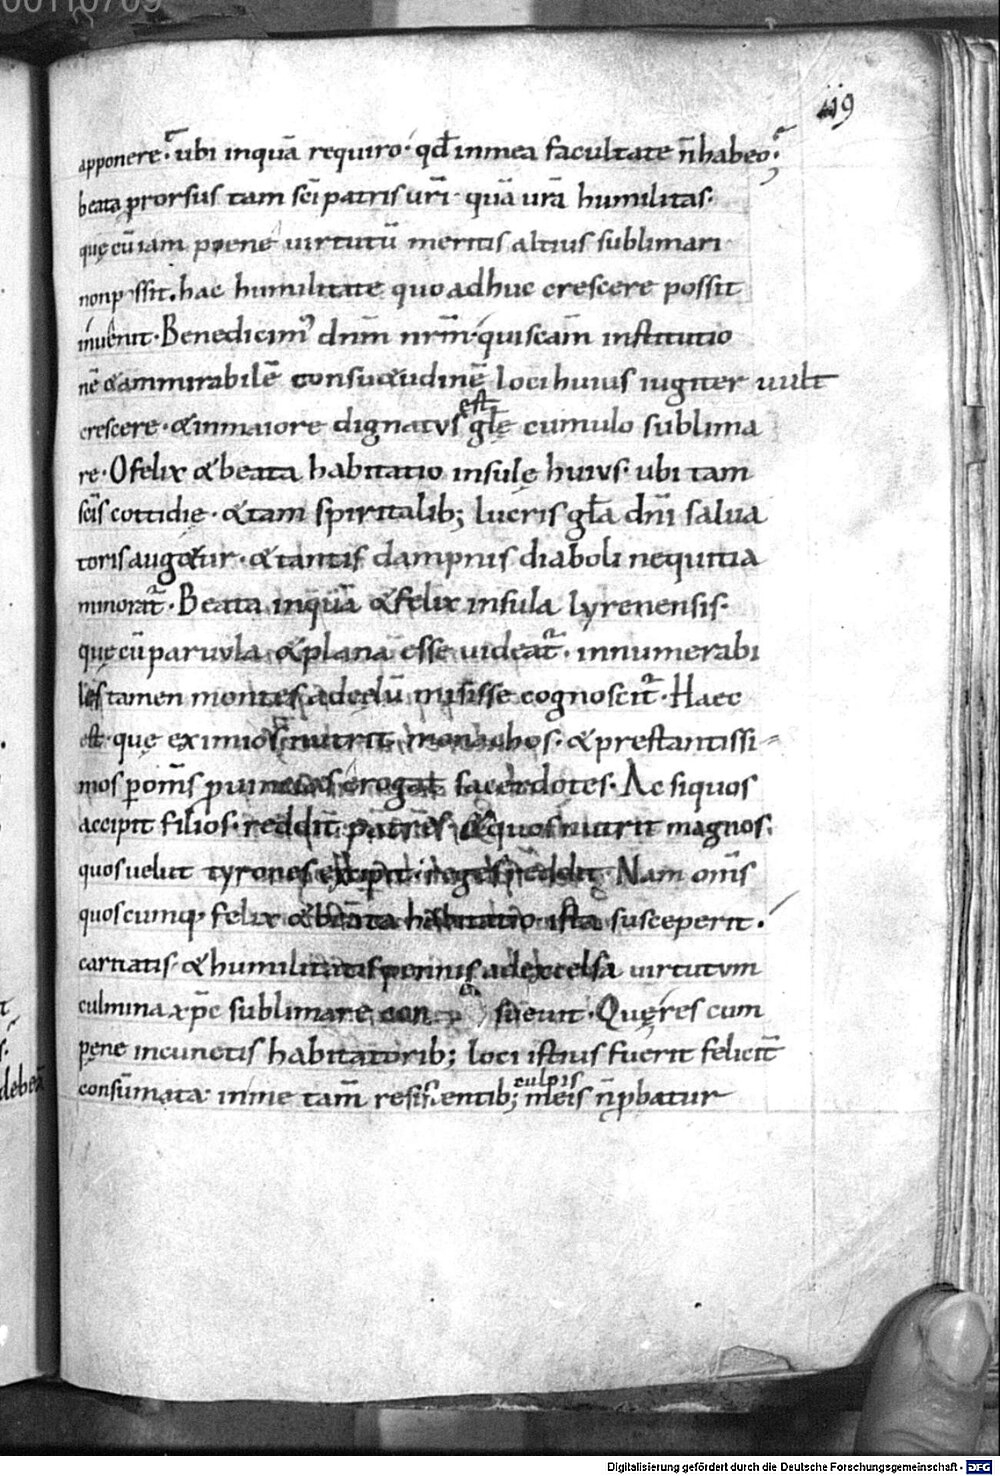 119
apponere· ubi inquā requiro· qđ inmea facultate ñ habeo;
beata prorsus tam sc̄i patris ur̄i· quā ur̄a humilitas·
quę cū iam poene uirtutū meritis altius sublimari
non possit. hac humilitate quo adhuc crescere possit
inuenit· Benedicim᾽ dn̄m nr̄m· qui sc̄am institutio
nē & ammirabilē consu&udinē loci huius iugiter uult
crescere· & inmaiore dignatus est gl̄ę cumulo sublima
re· O felix & beata habitatio insulę huius· ubi tam
sc̄is cottidie· & tam spiritalib; lucris gl̄a dn̄i salua
toris aug&ur· & tantis dampnis diaboli nequitia
minorat̄· Beata inquā & felix insula lyrenensis·
quę cū paruula & plana esse uideat̄· innumerabi
les tamen montes ad cęlū misisse cognoscit̄· Haec
est· quę eximios nutrit monachos· & prestantissi-
mos p om̄s prouincias erogat sacerdotes· Ac si quos
accipit filios· reddit patres· & quos nutrit magnos·
quos uelut tyrones excipit· reges reddit· Nam om̄s
quoscumq· felix & beata habitatio ista susceperit·
caritatis· & humilitatis pennis ad excelsa uirtutum
culmina xp̄c sublimare con sueuit· Quę res cum
pęne incunctis habitatorib; loci istius fuerit felicit̄
consūmata· inme tam̄ resistentib; culpis meis ñ pbatur
debeā
Digitalisierung gefördert durch die Deutsche Forschungsgemeinschaft - DFG